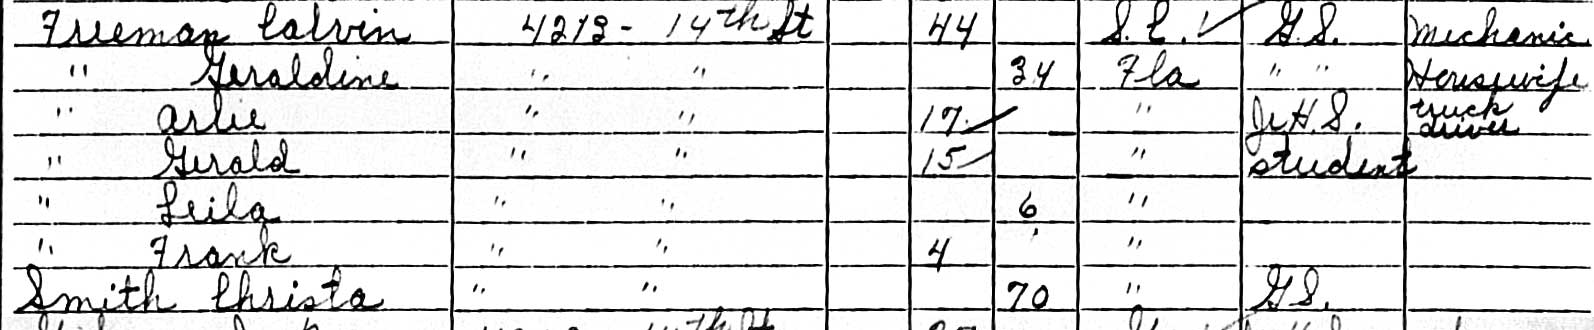 Freeman Calvin 4213 - 14th St 44 S.C. ✓ G.S. Mechanic
" Geraldine " " 34 Fla " " Housewife
" Arlie " " 17 " Jr H.S. truck driver
" Gerald " " 15 " student
" Leila " " 6 "
" Frank " " 4 "
Smith Christa " " 70 " G.S.
14th St